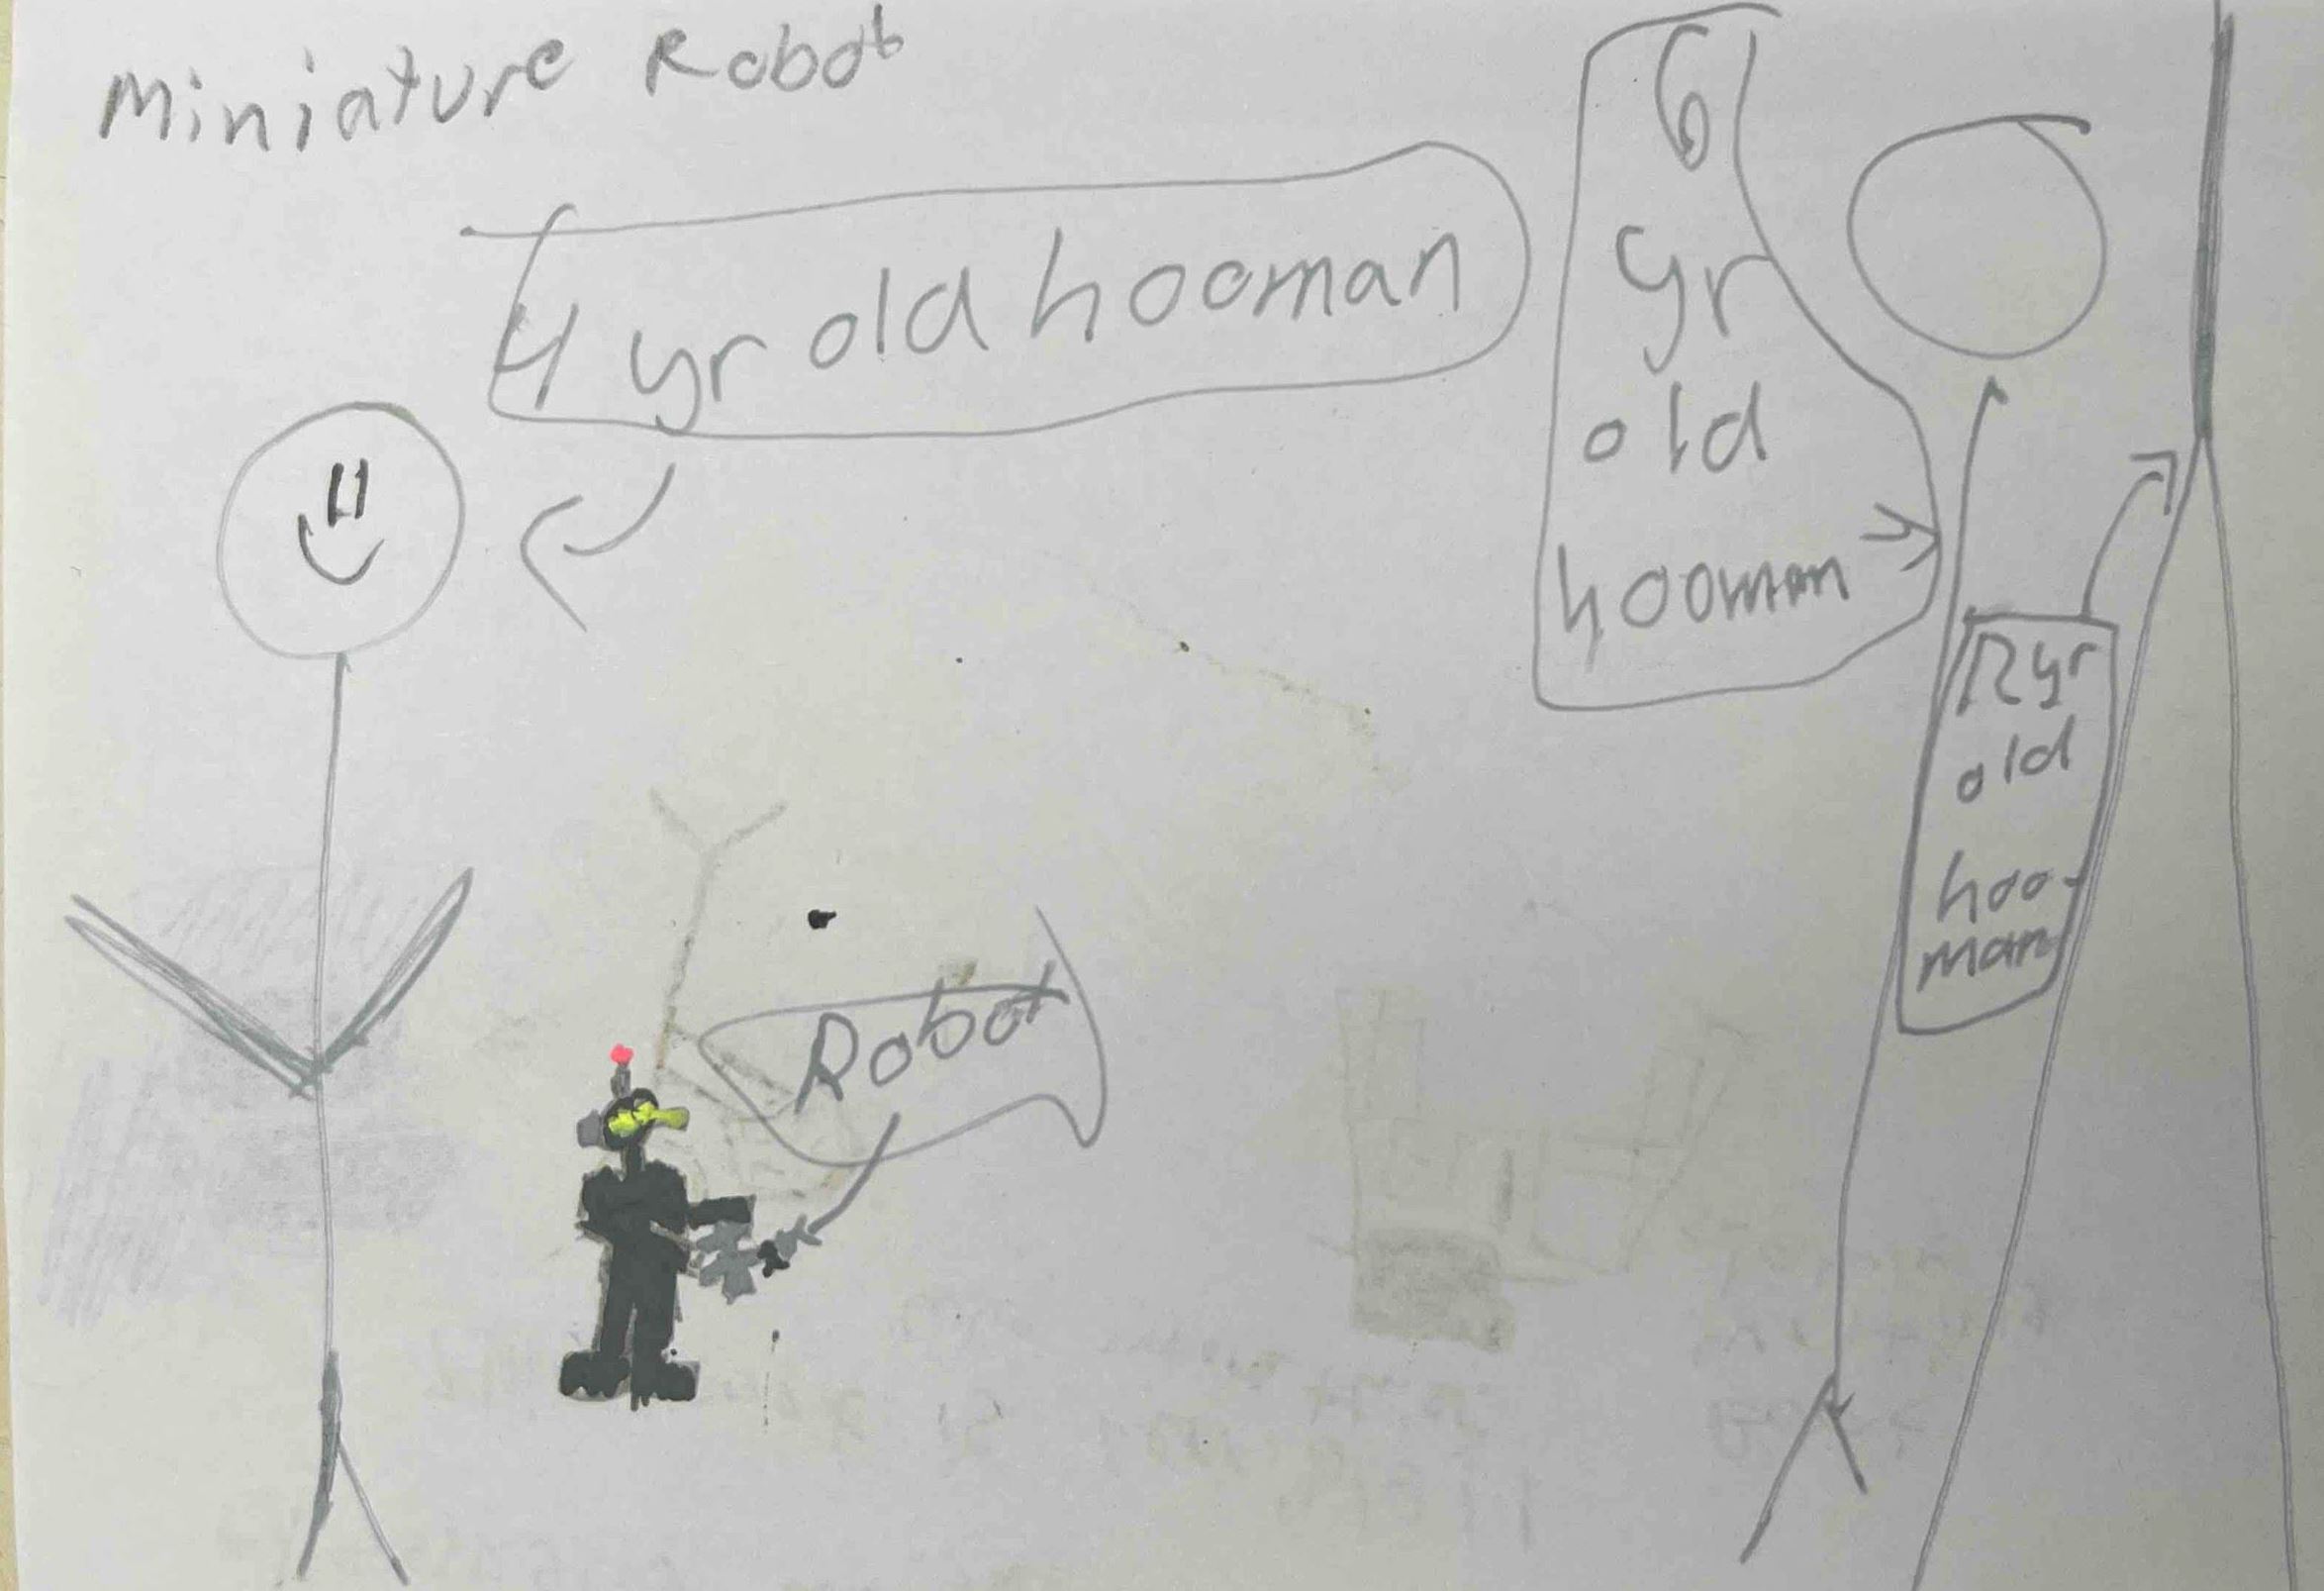 Miniature Robot
4 yr old hooman
6
yr
old
hooman
12yr
old
hoo-
man
Robot